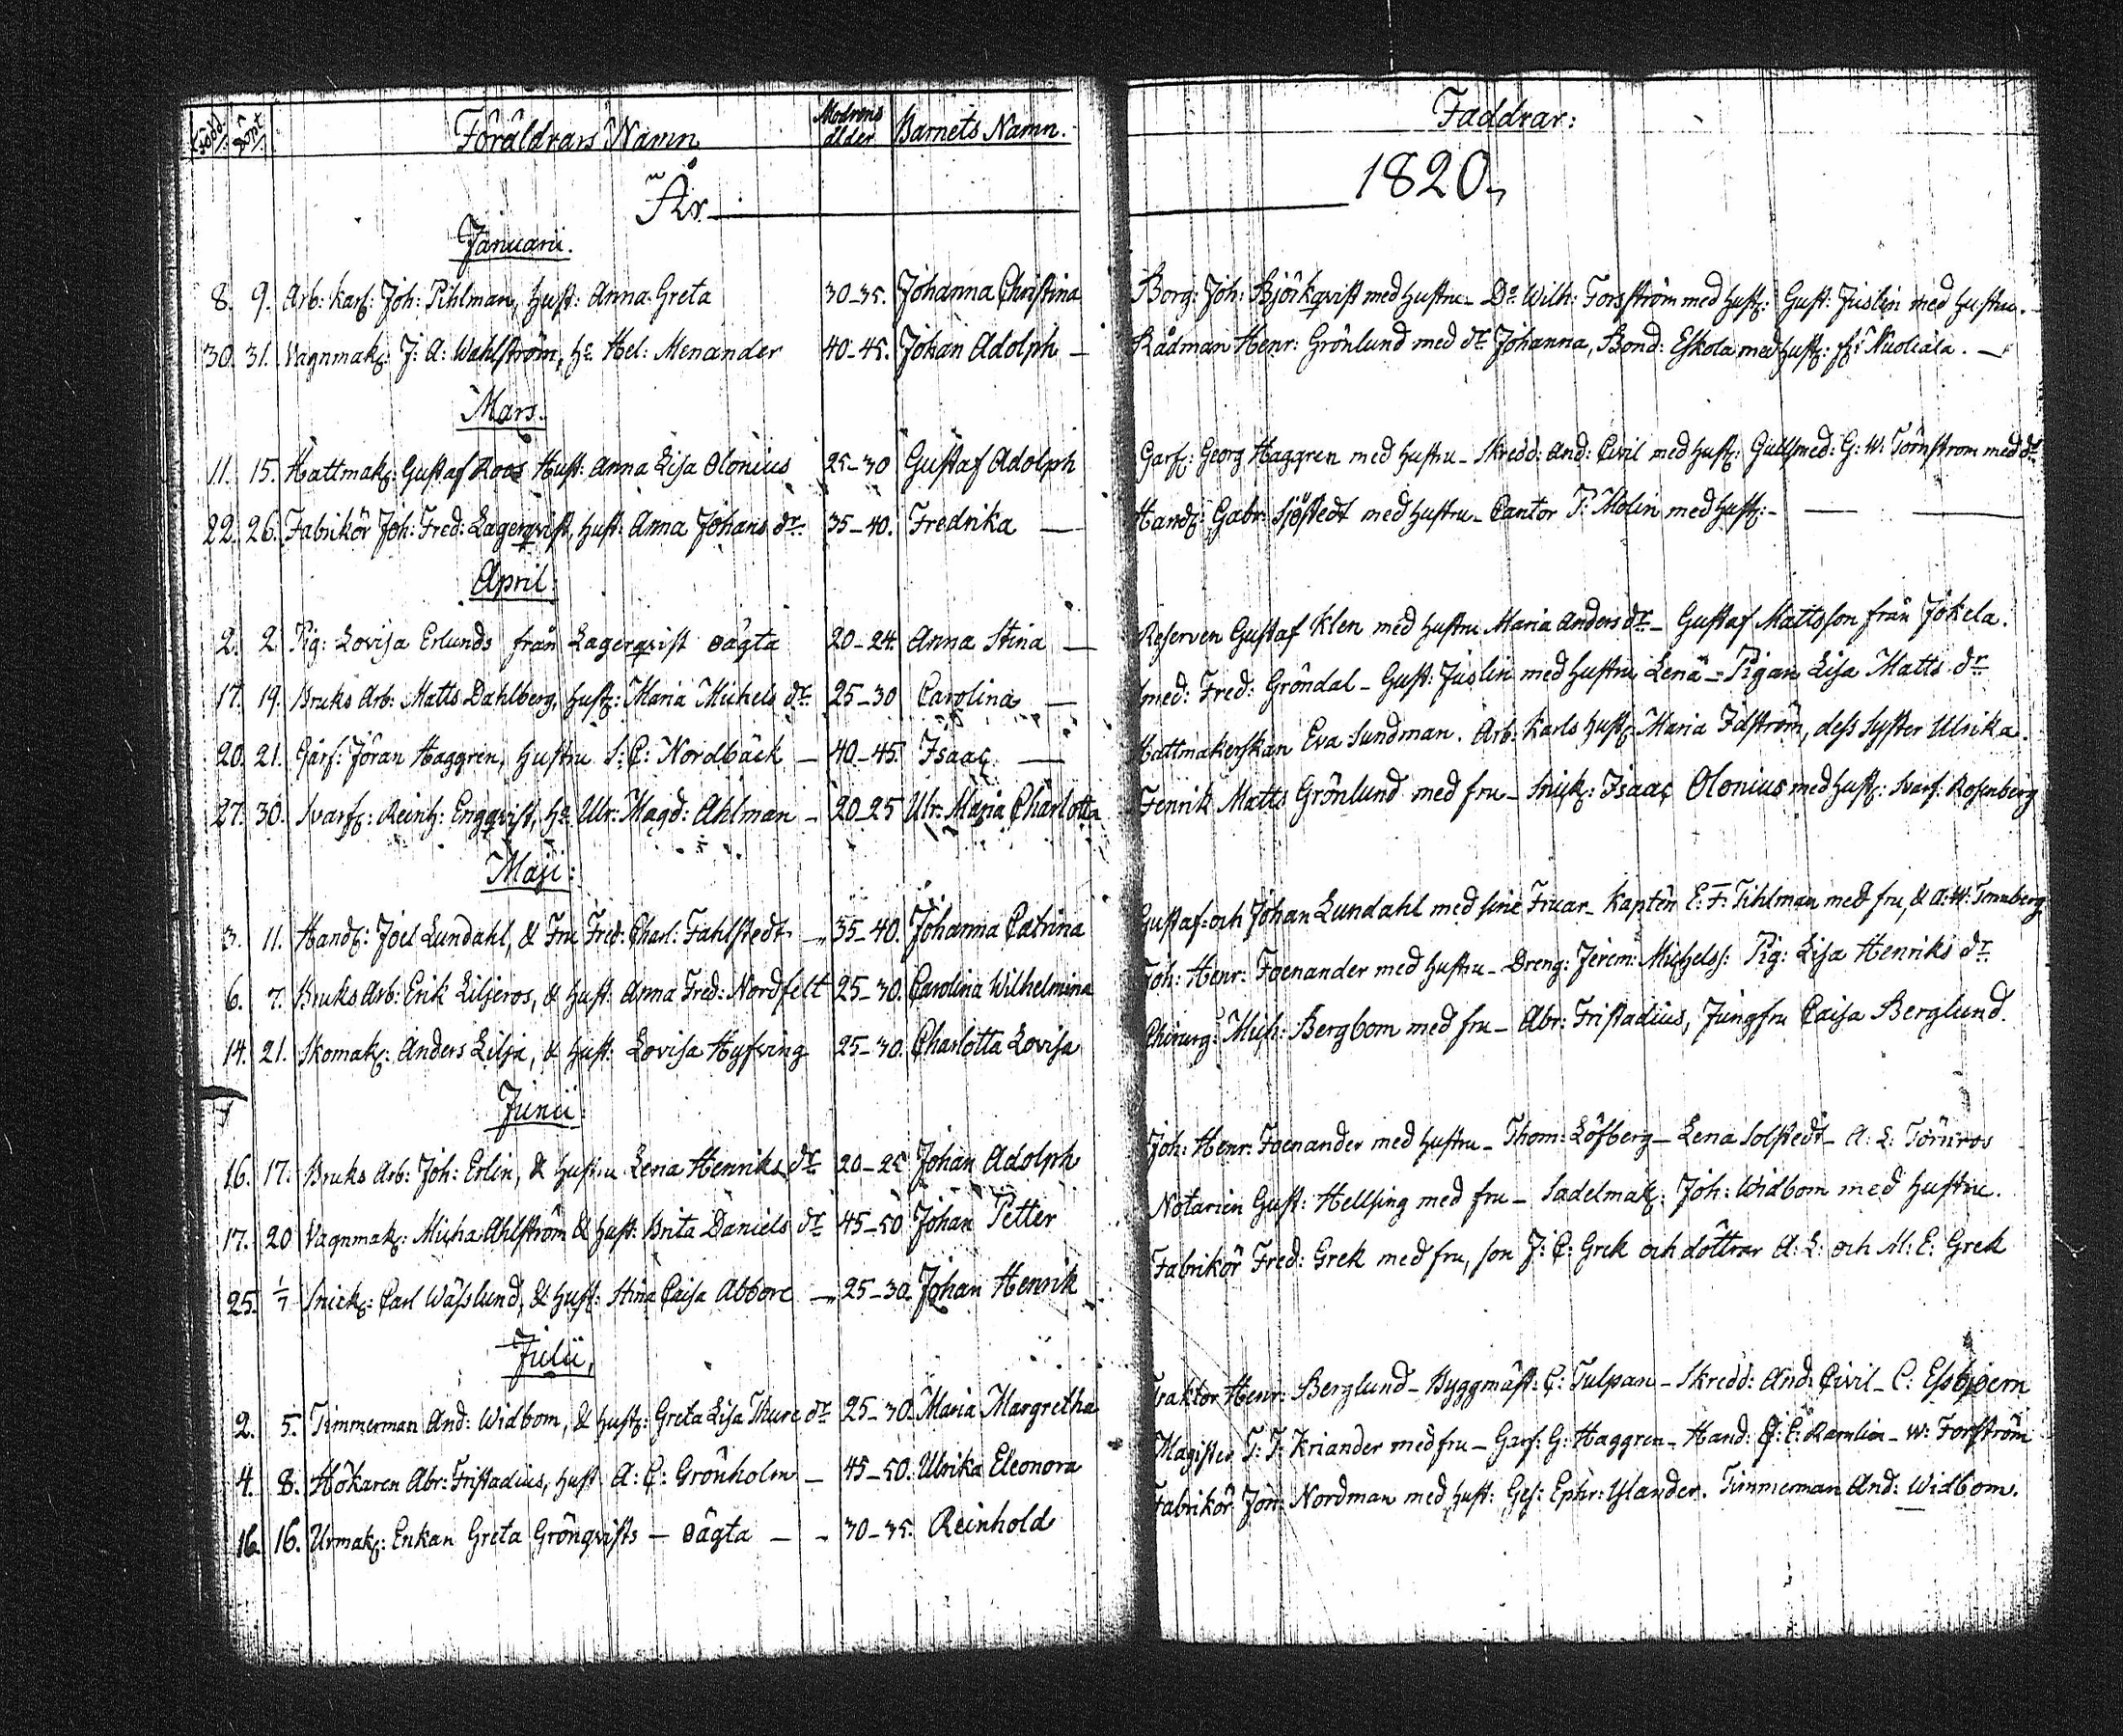 Född. Döpt. Föräldrars Namn Modrens ålder Barnets Namn. Faddrar:
År 1820,
Januarii.
8. 9. Arb: karl: Joh: Pihlman, hust: Anna Greta 30-35. Johanna Christina Borg: Joh: Björkqvist med hustru - Do Wilh: Forsström med hust: Gust: Juslin med hustru.
30. 31. Vagnmak: J: A: Wahlström, hs Hel: Menander 40-45. Johan Adolph - Rådman Henr: Grönlund med dr Johanna, Bond: Eskola med hust: fr: Nuoliala. -
Mars.
11. 15. Hattmak: Gustaf Roos Hust: Anna Lisa Olonius 25-30 Gustaf Adolph Garf: Georg Haggren med hustru - Skredd: And: Civil med hust: Gullsmed: G: W: Törnström med dr
22. 26. Fabrikör Joh: Fred: Lagerqvist, hust: Anna Johans dr 35-40. Fredrika - Handl: Gabr: Sjöstedt med hustru - Cantor P: Molin med hust: -
April:
2. 2. Pig: Lovisa Erlunds från Lagerqvist oägta 20-24. Anna Stina - Reserven Gustaf Klen med hustru Maria Anders dr - Gustaf Mattsson från Jokela.
17. 19. Bruks Arb: Matts Dahlberg, hust: Maria Michels dr 25-30 Carolina - Smed: Fred: Gröndal - Gust: Juslin med hustru Lena - Pigan Lisa Matts dr
20. 21. Garf: Jöran Haggren, hustru S: C: Nordbäck - 40-45. Isaac - Hattmakerskan Eva Sundman. Arb: karls hust: Maria Idström, dess syster Ulrika.
27. 30. Svarf: Reinh: Engqvist, hs Ulr: Magd: Ahlman - 20-25 Ulr: Maria Charlotta Fenrik Matts Grönlund med fru - Snick: Isaac Olonius med hust: Svarf: Rosenberg
Maji:
3. 11. Handl: Joel Lundahl, & Fru Fred: Charl: Fahlstedt - 35-40. Johanna Catrina Gustaf och Johan Lundahl med sine Fruar - Kaptèn E: F: Tihlman med fru, & A: W:
6. 7. Bruks Arb: Erik Liljeros, & hust: Anna Fred: Nordfelt 25-30. Carolina Wilhelmina Joh: Henr: Foenander med hustru - Dreng: Jerem: Michelss: Pig: Lisa Henriks dr
14. 21. Skomak: Anders Lilja, & hust: Lovisa Hyfving 25-30. Charlotta Lovisa Chirurg: Mich: Bergbom med fru - Abr: Fristadius, Jungfru Caisa Berglund.
Junii:
16. 17. Bruks Arb: Joh: Erlin, & hustru Lena Henriks dr 20-25 Johan Adolph Joh: Henr: Foenander med hustru - Thom: Löfberg - Lena Solstedt - A: L: Törnros
17. 20 Vagnmak: Micha Ahlström & hust: Brita Daniels dr 45-50 Johan Petter Notarien Gust: Hellsing med fru - Sadelmak: Joh: Widbom med hustru.
25. 1/7 Snick: Carl Wässlund, & hust: Stina Caisa Abbore - 25-30. Johan Henrik Fabrikör Fred: Grek med fru, son J: C: Grek och döttrar A: L: och M: E: Grek
Julii,
2. 5. Timmerman And: Widbom, & hust: Greta Lisa Thure dr 25-30. Maria Margretha Traktör Henr: Berglund - Byggmäst: C: Tulpan - Skredd: And: Civil - C: Essbjoern
4. 8. Hökaren Abr: Fristadius, hust A: C: Grönholm - 45-50. Ulrika Eleonora Magister J: J: Kriander med fru - Garf: G: Haggren - Hand: C: Ramlin - W: Forsström
16. 16. Urmak: Enkan Greta Grönqvists - oägta - - 30-35. Reinhold Fabrikör Jon: Nordman med hust: Ges: Ephr: Ylander. Timmerman And: Widbom.